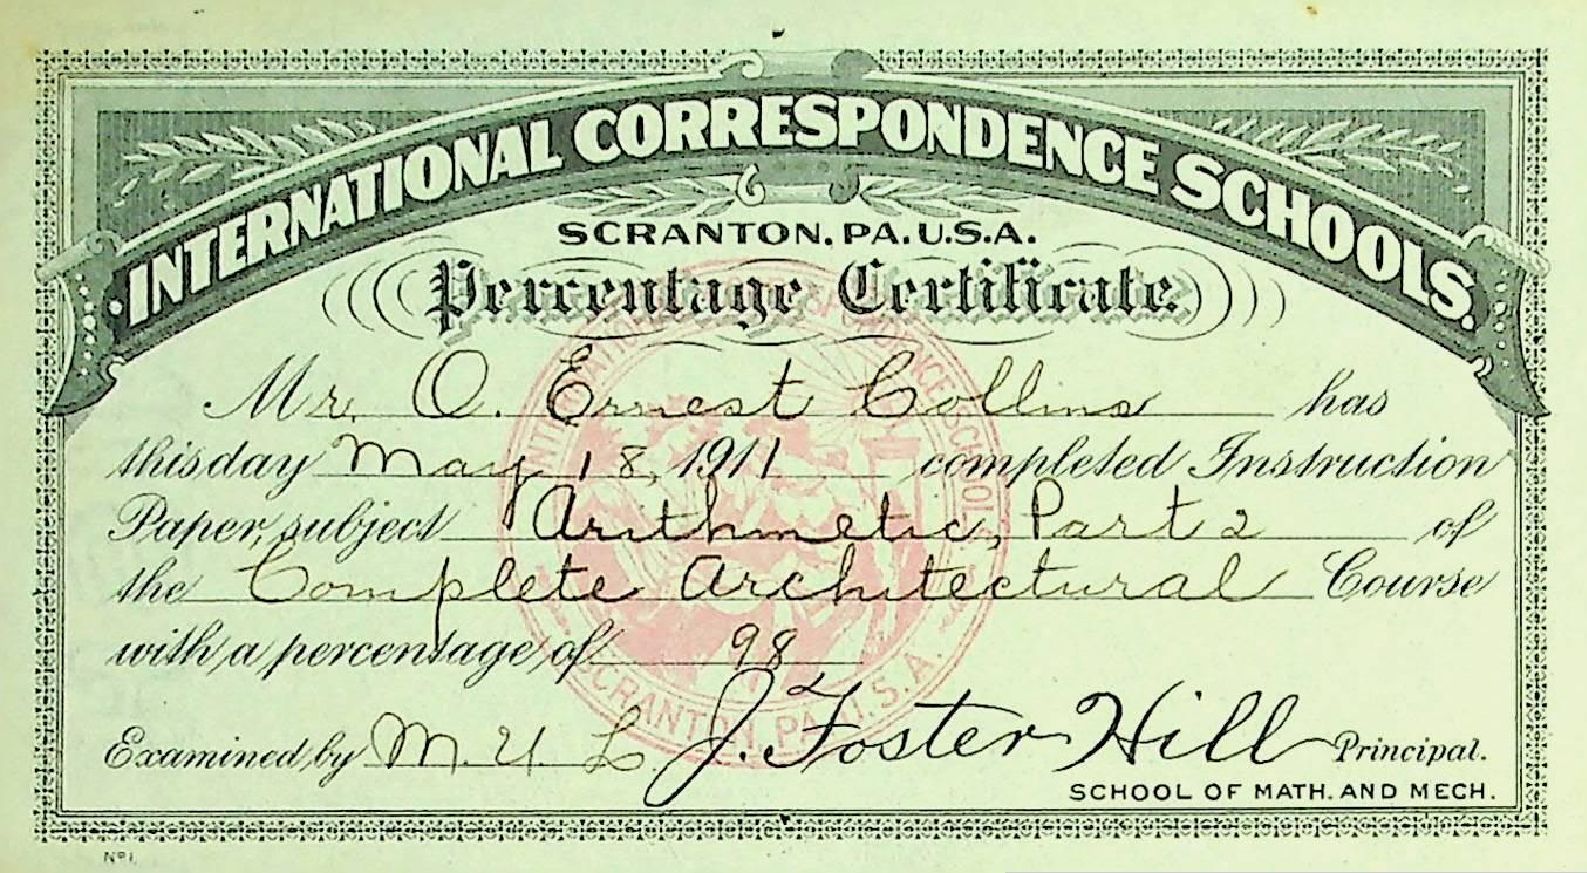 INTERNATIONAL CORRESPONDENCE SCHOOLS.
SCRANTON, PA. U.S.A.
Percentage Certificate.
Mr. O. Ernest Collins has
this day May 18, 1911 completed Instruction
Paper, subject Arithmetic, Part 2 of
the Complete Architectural Course
with a percentage of 98
Examined by M. Y. L. J. Foster Hill Principal.
SCHOOL OF MATH. AND MECH.
INTERNATIONAL CORRESPONDENCE SCHOOLS
SCRANTON, PA. U.S.A.
No 1.